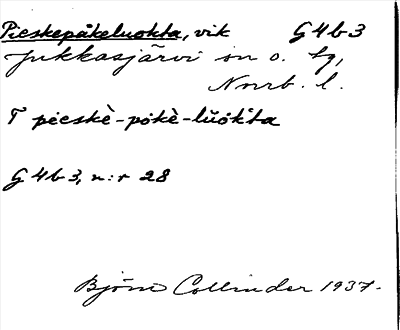 Pieskepåkeluokta, vik G4b3
Jukkasjärvi sn o. tg,
Norrb. l.
T pieskè-pökè-lŭökta
G4b3, n:r 28
Björn Collinder 1937.